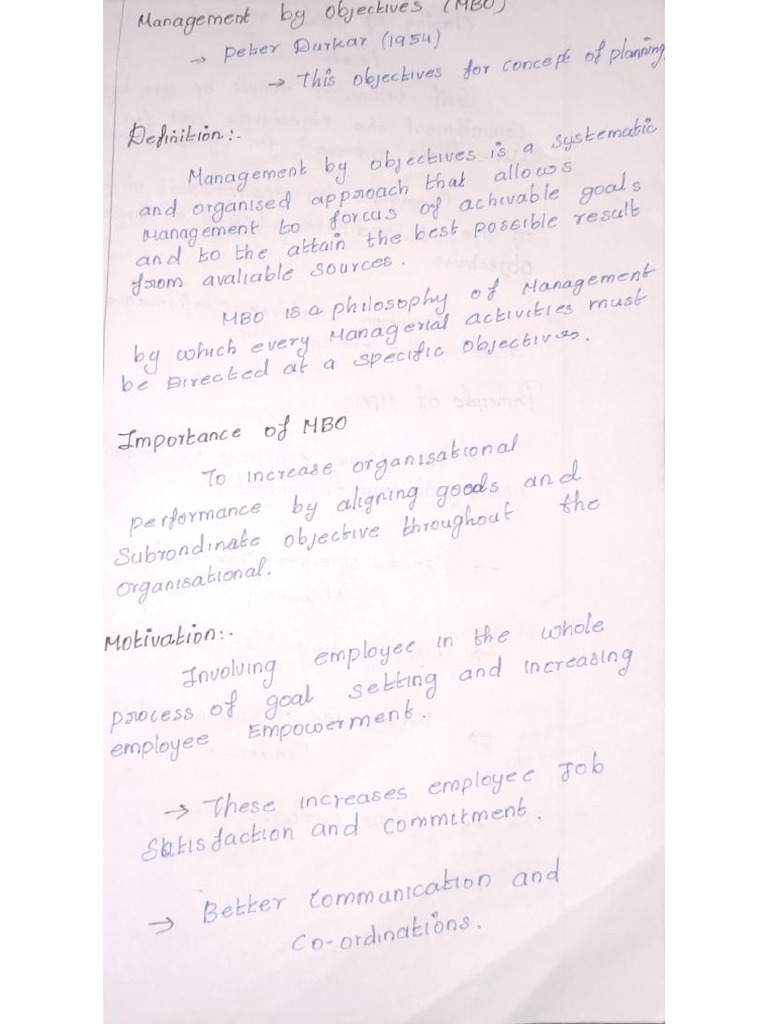 Management by objectives (MBO)
→ Peter Durkar (1954)
→ This objectives for concept of planning.
Definition:-
Management by objectives is a systematic
and organised approach that allows
Management to forcus of achivable goals
and to the attain the best possible result
from avaliable sources.
MBO is a philosophy of Management
by which every Managerial activities must
be Directed at a specific objectives.
Importance of MBO
To increase organisational
performance by aligning goods and
Subrondinate objective throughout the
organisational.
Motivation:-
Involving employee in the whole
process of goal setting and increasing
employee Empowerment.
→ These increases employee Job
Satisfaction and commitment.
→ Better Communication and
Co-ordinations.